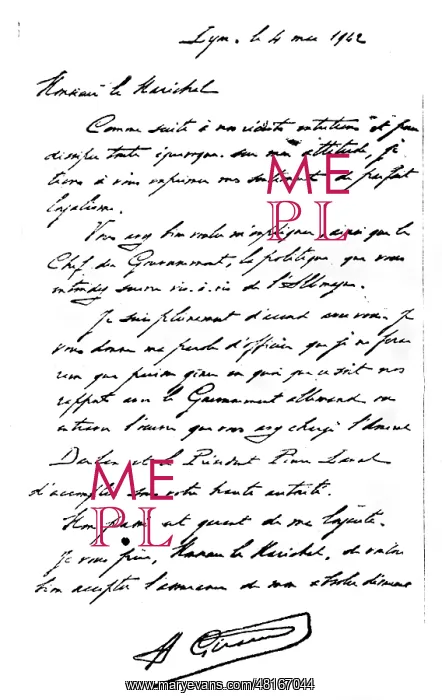 Lyon. le 4 mai 1942
Monsieur le Maréchal
Comme suite à nos récents entretiens et pour
dissiper toute équivoque sur mon attitude, je
tiens à vous exprimer mes sentiments de parfait
loyalisme.
Vous avez bien voulu m'expliquer, ainsi que le
Chef du Gouvernement, la politique que vous
entendez suivre vis-à-vis de l'Allemagne.
Je suis pleinement d'accord avec vous. Je
vous donne ma parole d'officier que je ne ferai
rien qui puisse gêner en quoi que ce soit nos
rapports avec le Gouvernement allemand, ou
entraver l'oeuvre que vous avez chargé l'Amiral
Darlan et le Président Pierre Laval
d'accomplir sous votre haute autorité.
Mon passé est garant de ma loyauté.
Je vous prie, Monsieur le Maréchal, de vouloir
bien accepter l'assurance de mon absolu dévouement
H Giraud
ME
PL
ME
P.L
www.maryevans.com/48167044